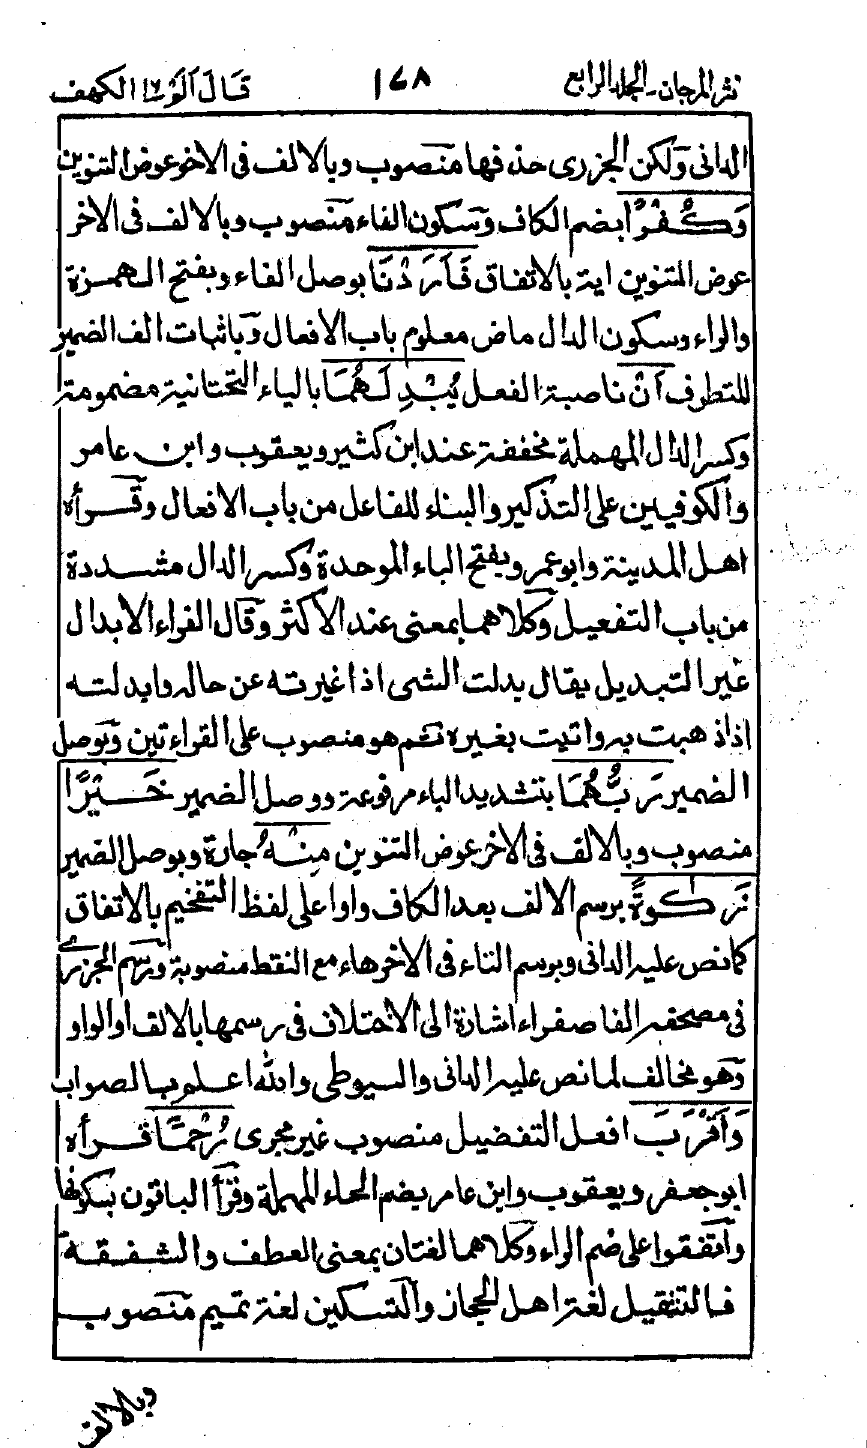 نثر المرجان۔ المجلد الرابع ١٦٨ قال الم ١٦ الكهف
الدانى ولكن الجزرى حذفها منصوب وبالالف فى الاخر عوض التنوين
وَكُفْرًا بضم الكاف وسكون الفاء منصوب وبالالف فى الاخر
عوض التنوين اية بالاتفاق فَاَرَدْنَا بوصل الفاء وبفتح الهمزة
والراء وسكون الدال ماض معلوم باب الافعال وباثبات الف الضمير
للتطرف اَنْ ناصبة الفعل يُبْدِلَهُمَا بالياء التحتانية مضمومة
وكسر الدال المهملة مخففة عند ابن كثير ويعقوب وابن عامر
والكوفيين على التذكير والبناء للفاعل من باب الافعال وقرأه
اهل المدينة وابو عمرو بفتح الباء الموحدة وكسر الدال مشددة
من باب التفعيل وكلاهما بمعنى عند الاكثر وقال الفراء الابدال
غير التبديل يقال بدلت الشى اذا غيرته عن حاله وابدلته
اذا ذهبت به واتيت بغيره نعم هو منصوب على القراءتين وبوصل
الضمير رَبُّهُمَا بتشديد الباء مرفوعة ووصل الضمير خَيْرًا
منصوب وبالالف فى الاخر عوض التنوين مِنْهُ جارة وبوصل الضمير
زَكٰوةً برسم الالف بعد الكاف واوا على لفظ التفخيم بالاتفاق
كما نص عليه الدانى وبرسم التاء فى الاخر هاء مع النقط منصوبة ورسم الجزرى
فى مصحفه الفا صفراء اشارة الى الاختلاف فى رسمها بالالف او الواو
وهو مخالف لما نص عليه الدانى والسيوطى والله اعلم بالصواب
وَاَقْرَبَ افعل التفضيل منصوب غير مجرى رُحْمًا قرأه
ابو جعفر ويعقوب وابن عامر بضم الحاء المهملة وقرأ الباقون بسكونها
واتفقوا على ضم الراء وكلاهما لغتان بمعنى العطف والشفقة
فالتثقيل لغة اهل الحجاز والتسكين لغة تميم منصوب
وبالالف